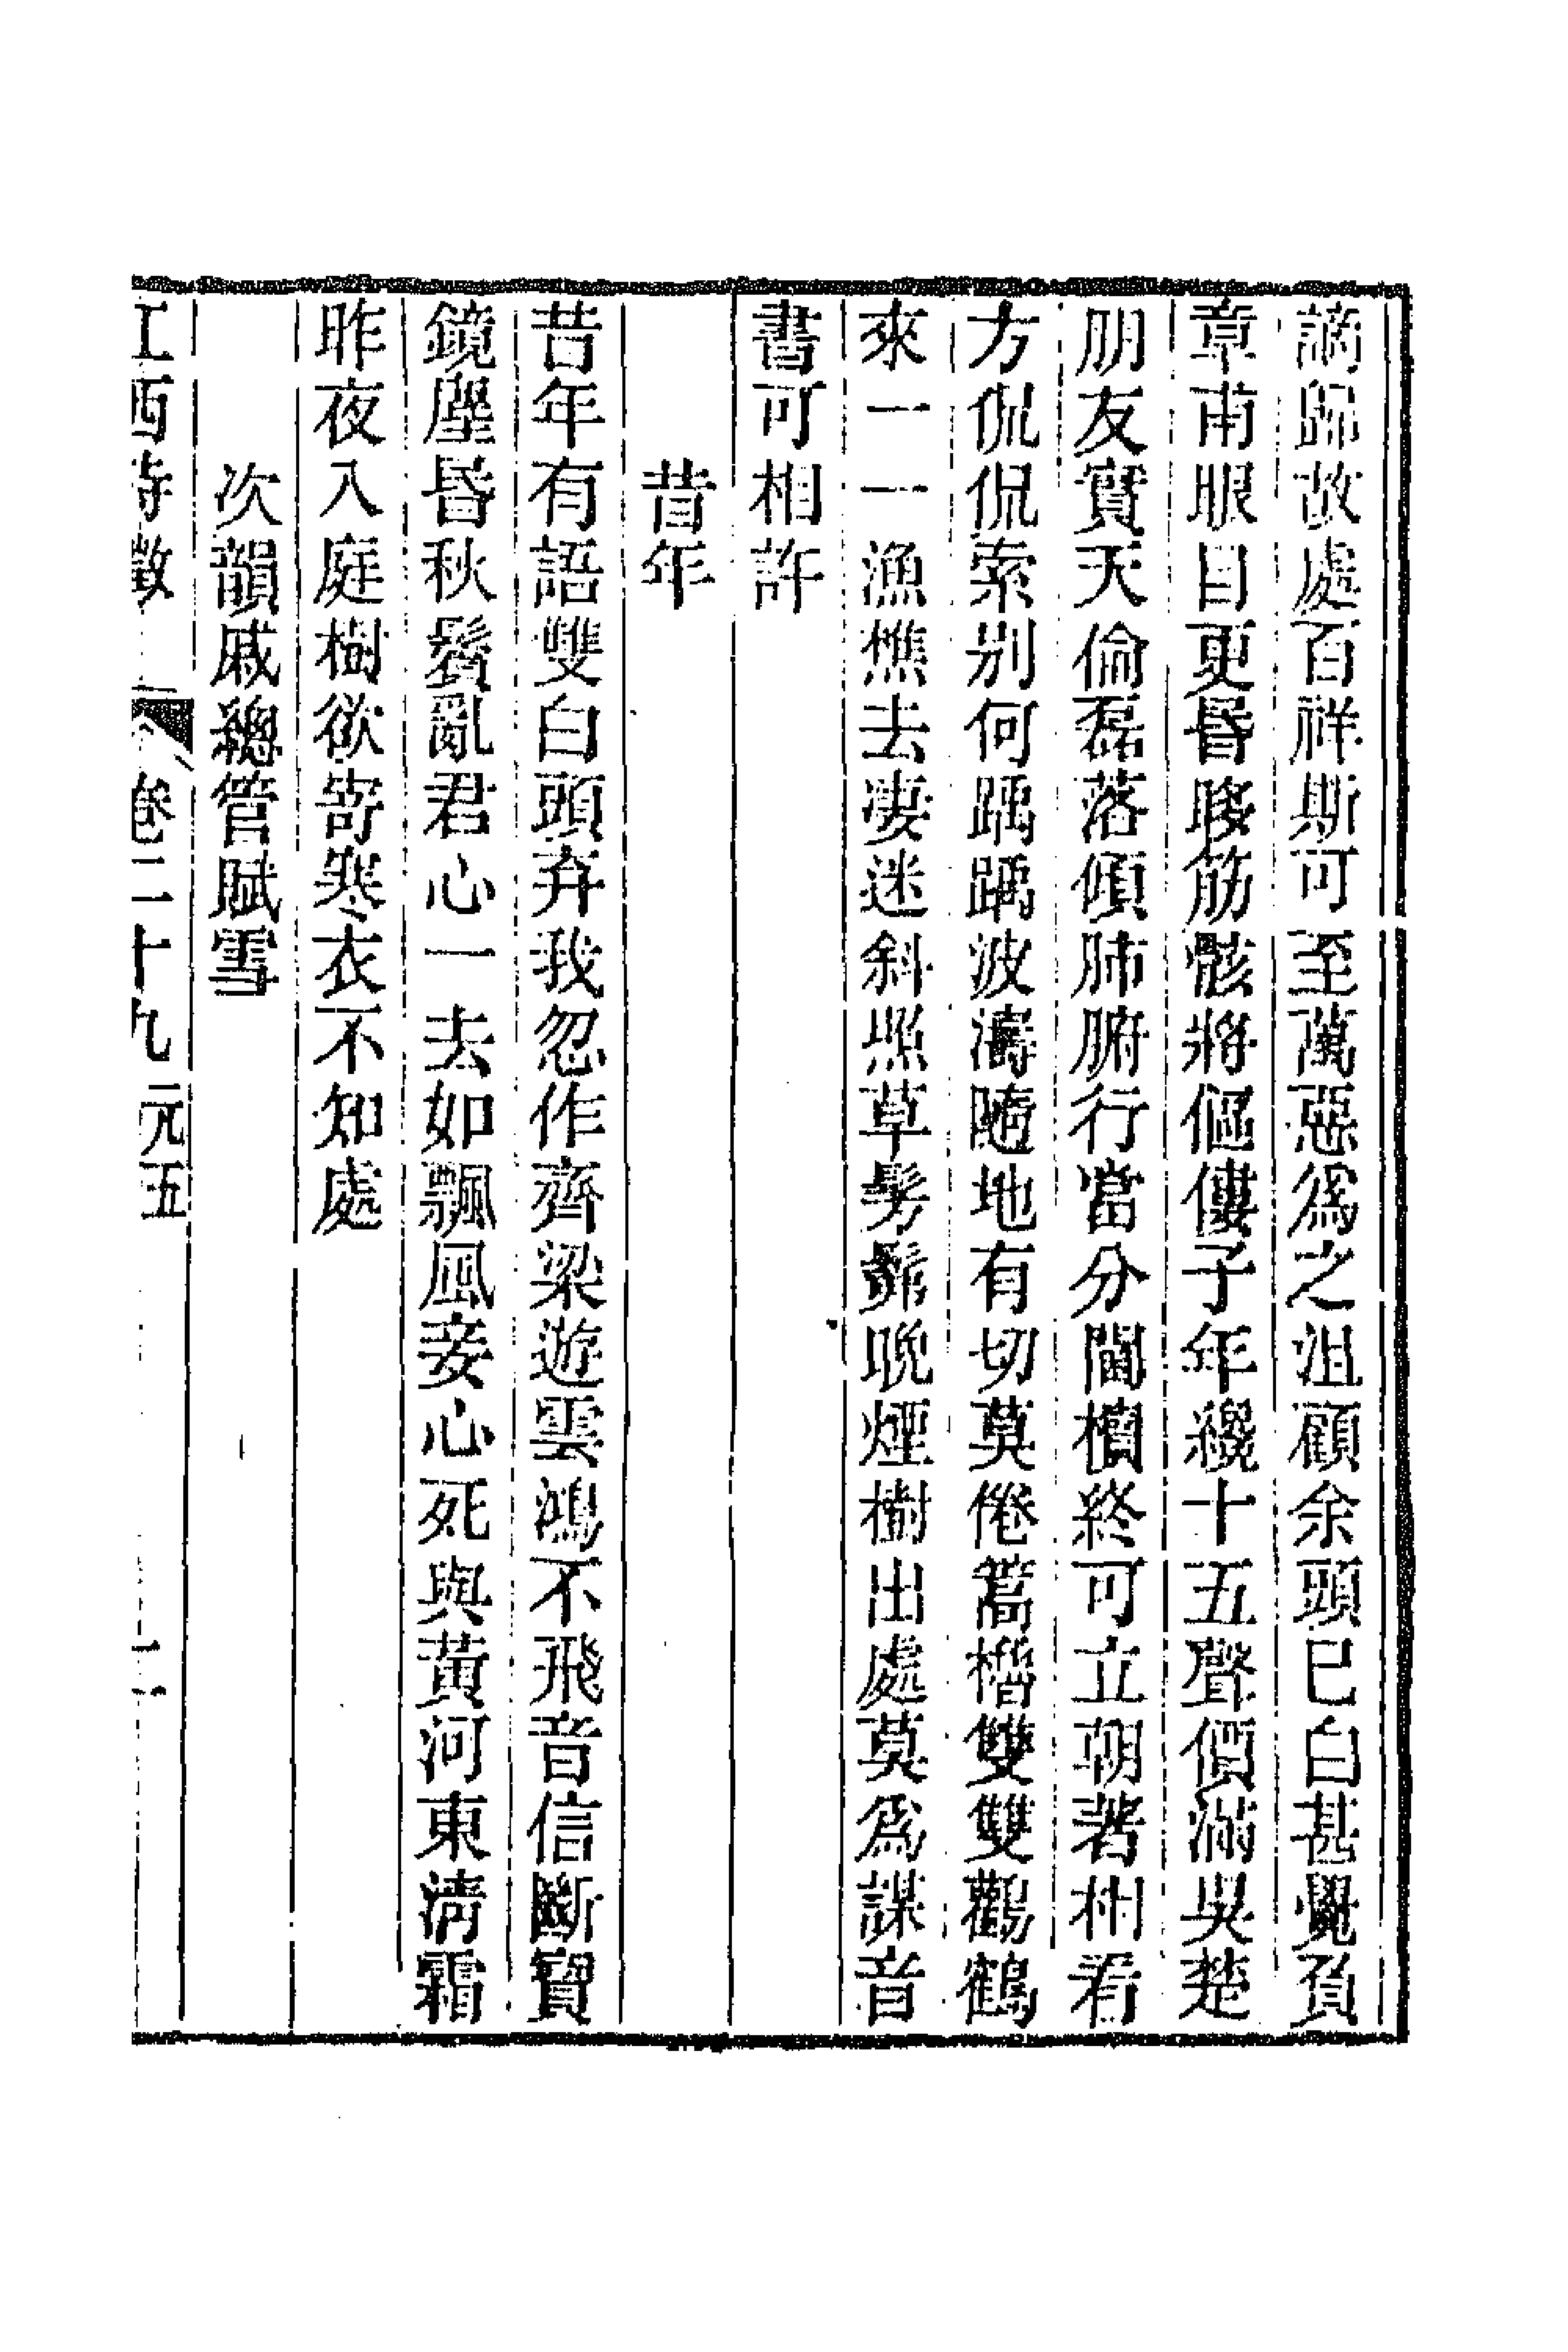 謫歸故處百祥斯可至萬惡為之沮顧余頭已白甚覺負
章甫眼目更昏眵筋骸將傴僂子年纔十五聲價滿吳楚
朋友實天倫磊落傾肺腑行當分閫櫝終可立朝著相看
方侃侃索別何踽踽波濤隨地有切莫倦篙櫓雙雙鸛鶴
來一一漁樵去淒迷斜照草髣髴晚煙樹出處莫為謀音
書可相許
昔年
昔年有語雙白頭弃我忽作齊梁遊雲鴻不飛音信斷寶
鏡塵昏秋鬢亂君心一去如飄風妾心死與黃河東淸霜
昨夜入庭樹欲寄寒衣不知處
次韻戚總管賦雪
江西詩徵 卷二十九元五